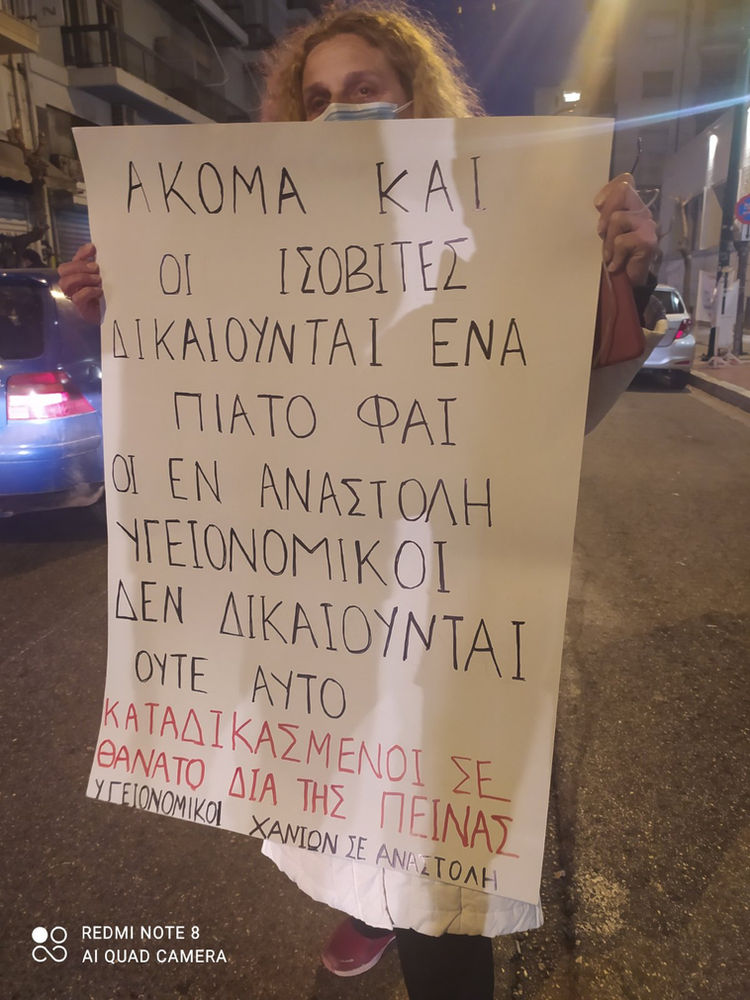 ΑΚΟΜΑ ΚΑΙ
ΟΙ ΙΣΟΒΙΤΕΣ
ΔΙΚΑΙΟΥΝΤΑΙ ΕΝΑ
ΠΙΑΤΟ ΦΑΙ
ΟΙ ΕΝ ΑΝΑΣΤΟΛΗ
ΥΓΕΙΟΝΟΜΙΚΟΙ
ΔΕΝ ΔΙΚΑΙΟΥΝΤΑΙ
ΟΥΤΕ ΑΥΤΟ
ΚΑΤΑΔΙΚΑΣΜΕΝΟΙ ΣΕ
ΘΑΝΑΤΟ ΔΙΑ ΤΗΣ ΠΕΙΝΑΣ
ΥΓΕΙΟΝΟΜΙΚΟΙ ΧΑΝΙΩΝ ΣΕ ΑΝΑΣΤΟΛΗ
REDMI NOTE 8
AI QUAD CAMERA